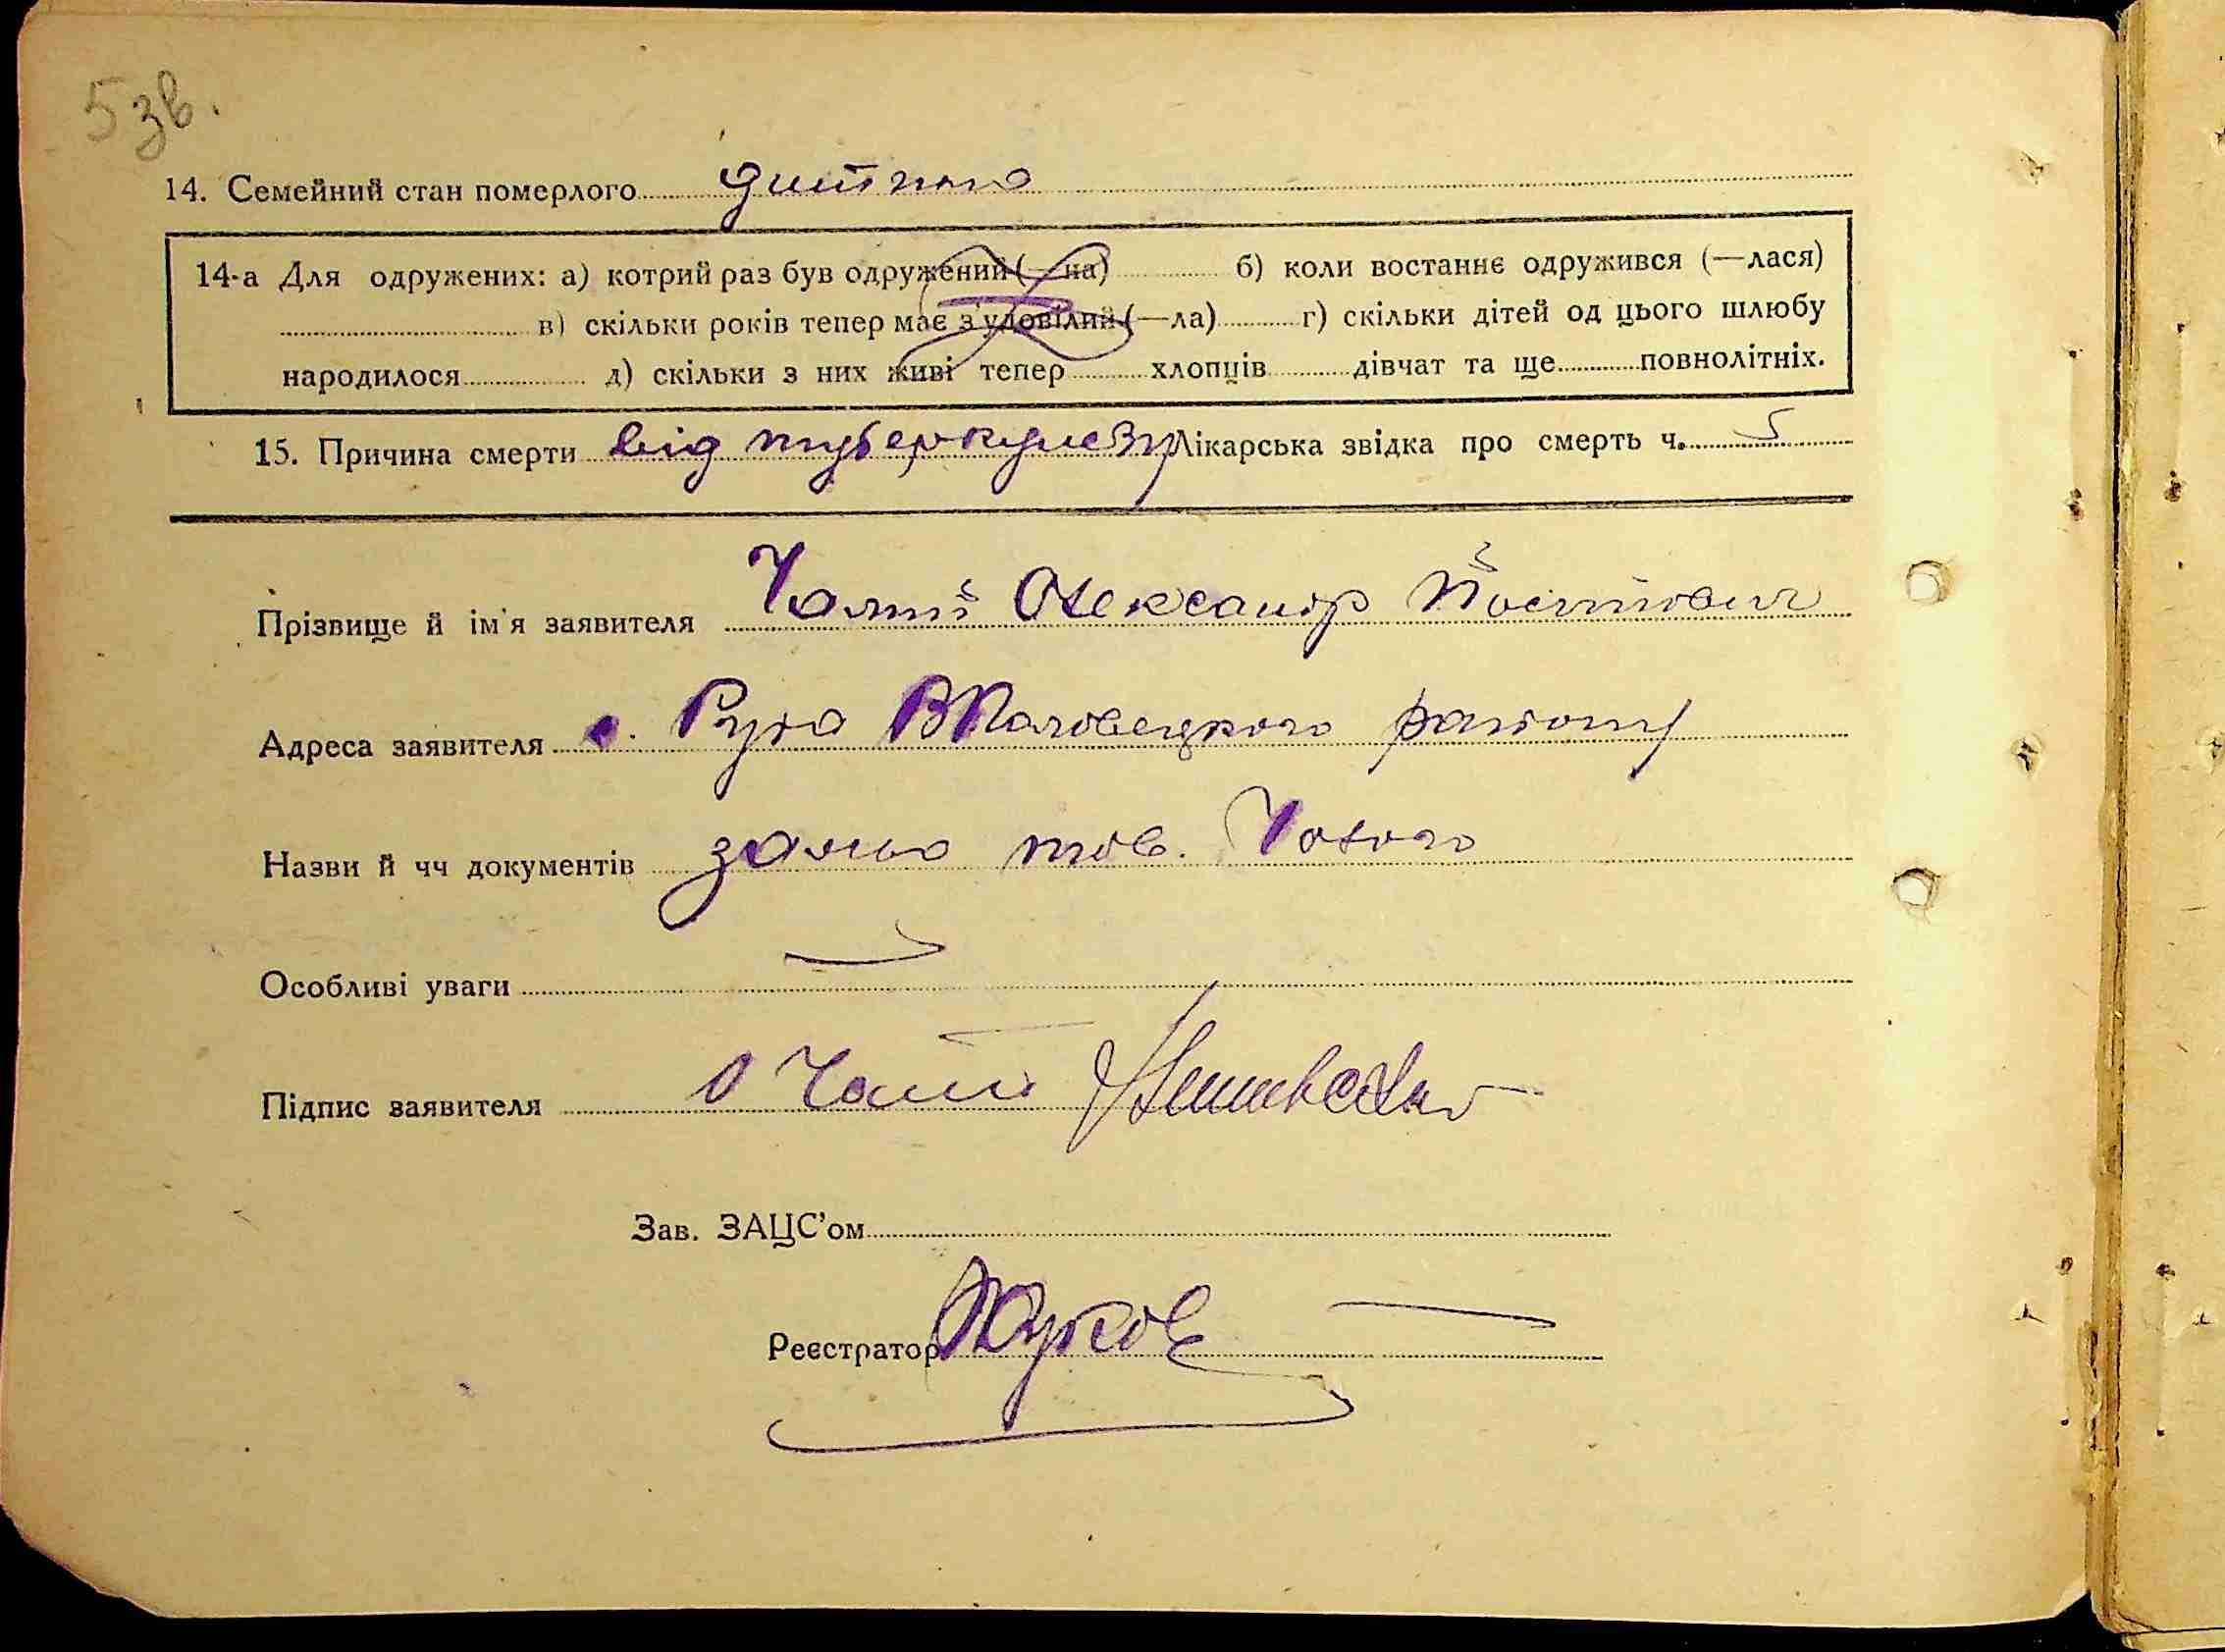 5 зв.
14. Семейний стан померлого дитина
14-а Для одружених: а) котрий раз був одружений (—на) б) коли востаннє одружився (—лася)
в) скільки років тепер має з'удовілий (—ла) г) скільки дітей од цього шлюбу
народилося д) скільки з них живі тепер хлопців дівчат та ще повнолітніх.
15. Причина смерти від туберкулезу Лікарська звідка про смерть ч. 5
Прізвище й ім'я заявителя Чалий Олександр
Адреса заявителя с. Руда району
Назви й чч документів заява тов. Чалого
Особливі уваги
Підпис заявителя О Чалий
Зав. ЗАЦС'ом
Реєстратор Жуков